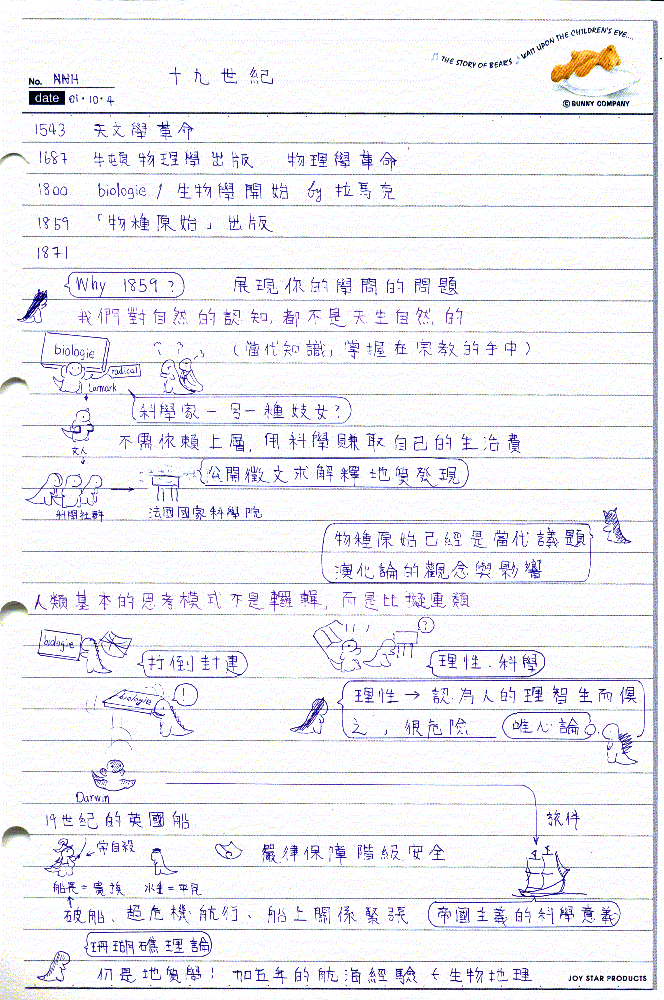 THE STORY OF BEAR'S WAIT UPON THE CHILDREN'S EYE...
No. NNH
十九世紀
date 01·10·4
© BUNNY COMPANY
1543 天文學革命
1687 牛頓物理學出版 物理學革命
1800 biologie / 生物學開始 by 拉馬克
1859 「物種原始」出版
1871
Why 1859? 展現你的學問的問題
我們對自然的認知,都不是天生自然的
biologie
? ?
(當代知識,掌握在宗教的手中)
radical
Lamark
科學家-另一種妓女?
不需依賴上層,用科學賺取自己的生活費
友人
公開徵文求解釋地質發現
科閥社群
法國國家科學院
物種原始已經是當代議題
演化論的觀念與影響
人類基本的思考模式不是邏輯,而是比擬連類
biologie
打倒封建
?
理性.科學
biologie
!
理性→認為人的理智生而俱
之,很危險
唯心論
Darwin
19世紀的英國船
旅行
常自殺
嚴律保障階級安全
船長=貴族 水手=平民
破船、超危機航行、船上關係緊張
帝國主義的科學意義
珊瑚礁理論
仍是地質學! 加五年的航海經驗 + 生物地理
JOY STAR PRODUCTS